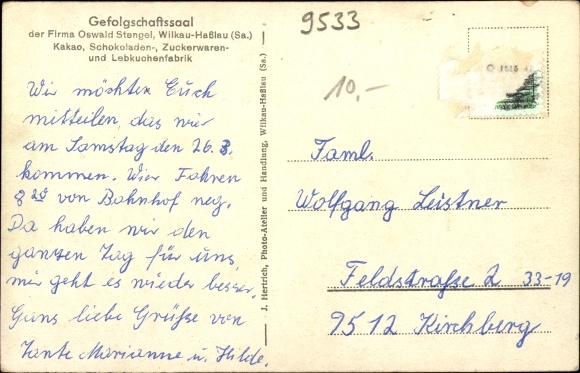 Gefolgschaftssaal
der Firma Oswald Stengel, Wilkau-Haßlau (Sa.)
Kakao, Schokoladen-, Zuckerwaren-
und Lebkuchenfabrik
Wir möchten Euch
mitteilen, das wir
am Samstag den 26.3.
kommen. Wier Fahren
8 20 von Bahnhof weg.
Da haben wir den
ganzen Tag für uns,
mir geht es wieder besser.
Gans liebe Grüße von
Tante Marianne u. Hilde.
J. Hertrich, Photo-Atelier und Handlung, Wilkau-Haßlau (Sa.)
9533
10,-
Faml.
Wolfgang Leistner
Feldstraße 2 33-19
9512 Kirchberg